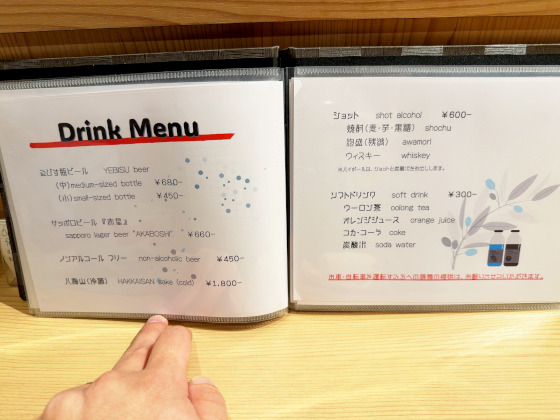 Drink Menu
ゑびす瓶ビール YEBISU beer
(中)medium-sized bottle ¥680-
(小)small-sized bottle ¥450-
サッポロビール『赤星』
sapporo lager beer "AKABOSHI" ¥660-
ノンアルコール フリー non-alcoholic beer ¥450-
八海山(冷酒) HAKKAISAN sake (cold) ¥1,800-
ショット shot alcohol ¥600-
焼酎(麦・芋・黒糖) shochu
泡盛(残波) awamori
ウィスキー whiskey
※ハイボールは、ショットと炭酸でお出しします。
ソフトドリンク soft drink ¥300-
ウーロン茶 oolong tea
オレンジジュース orange juice
コカ・コーラ coke
炭酸水 soda water
お車・自転車を運転する方への酒類の提供は、お断りさせていただきます。